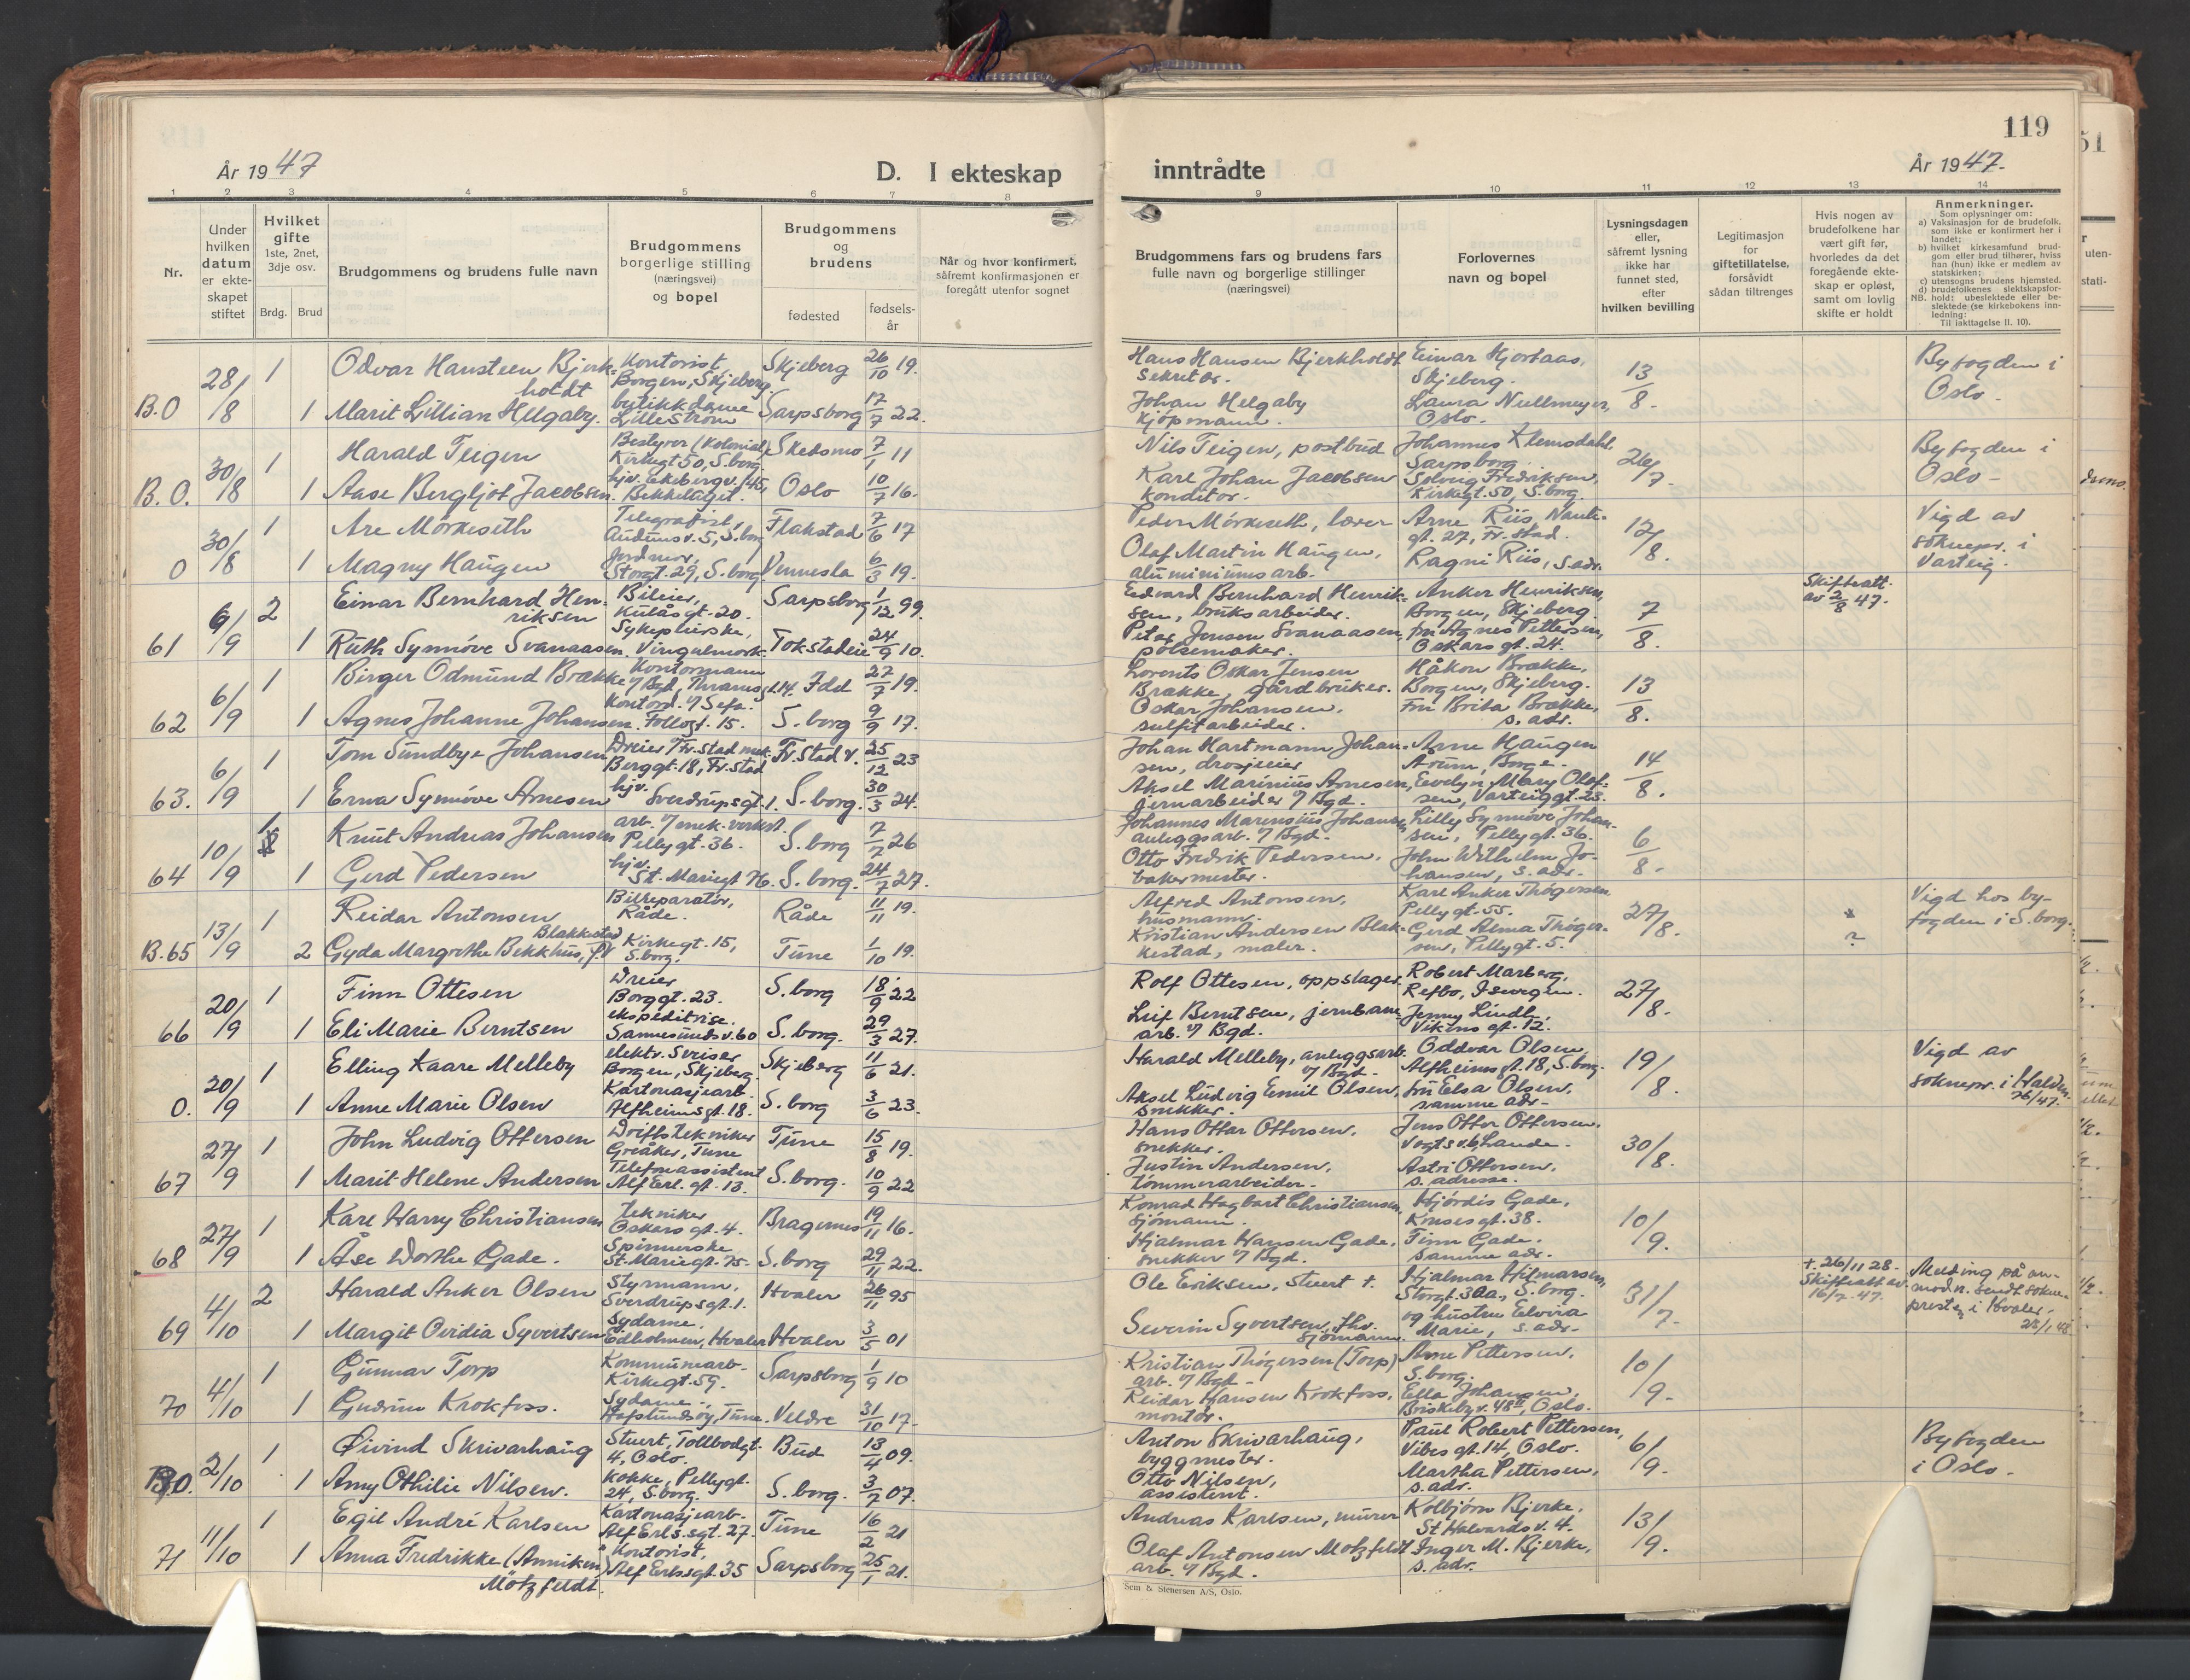 119
År 1947
D. I ekteskap
inntrådte
År 1947.
1 2 3 4 5 6 7 8 9 10 11 12 13 14
Nr.
Under
hvilken
datum
er ekte-
skapet
stiftet
Hvilket
gifte
1ste, 2net,
3dje osv.
Brdg. Brud
Brudgommens og brudens fulle navn
Brudgommens
borgerlige stilling
(næringsvei)
og bopel
Brudgommens
og
brudens
fødested
fødsels-
år
Når og hvor konfirmert,
såfremt konfirmasjonen er
foregått utenfor sognet
Brudgommens fars og brudens fars
fulle navn og borgerlige stillinger
(næringsvei)
Forlovernes
navn og bopel
Lysningsdagen
eller,
såfremt lysning
ikke har
funnet sted,
efter
hvilken bevilling
Legitimasjon
for
giftetillatelse,
forsåvidt
sådan tiltrenges
Hvis nogen av
brudefolkene har
vært gift før,
hvorledes da det
foregående ekte-
skap er opløst,
samt om lovlig
skifte er holdt
Anmerkninger.
Som oplysninger om:
a) Vaksinasjon for de brudefolk,
som ikke er konfirmert her i
landet;
b) hvilket kirkesamfund brud-
gom eller brud tilhører, hviss
han (hun) ikke er medlem av
statskirken;
c) utensogns brudens hjemsted.
d) brudefolkenes slektskapsfor-
NB. hold: ubeslektede eller be-
slektede (se kirkebokens inn-
ledning:
Til iakttagelse II. 10).
B.O 28/8 1 Odvar Hansteen Bjerk-
holdt
Kontorist
Borgen, Skjeberg
Skjeberg 26/10 19.
Hans Hansen Bjerkholdt
sekretær.
Einar Hjortaas,
Skjeberg.
13/8.
Byfogden i
Oslo.
1 Marit Lillian Helgaby.
butikkdame
Lillestrøm
Sarpsborg 17/7 22.
Johan Helgaby
kjøpmann.
Laura Nullmeyer,
Oslo.
B.O. 30/8 1 Harald Teigen
Bestyrer (Kolonial)
Kirkegt 50, S.borg.
Skedsmo 7/1 11
Nils Teigen, postbud
Johannes Klemsdahl,
Sarpsborg.
26/7.
Byfogden i
Oslo -
1 Aase Bergljot Jacobsen.
hjv. Ekebergv. 145,
Bekkelaget.
Oslo 10/7 16.
Karl Johan Jacobsen
konditor.
Solveig Fredriksen,
Kirkegt. 50, S.borg.
0 30/8 1 Are Mørkeseth
Telegrafist,
Audunsv. 5, S.borg
Flakstad 7/6 17
Peder Mørkeseth, lærer
Arne Riis, Nante-
gt. 27, Fr.stad.
12/8.
Vigd av
soknepr. i
Varteig.
1 Magny Haugen
Jordmor,
Storgt. 29, S.borg.
Vennesla 6/3 19.
Olaf Martin Haugen,
aluminiumsarb.
Ragni Riis, s.adr.
61 6/9 2 Einar Bernhard Hen-
riksen
Bileier,
Kulåsgt. 20.
Sarpsborg 1/12 99.
Edvard Bernhard Henrik-
sen, bruksarbeider.
Anker Henriksen,
Borgen, Skjeberg.
7/8.
Skifteatt.
av 2/8 47.
1 Ruth Synnøve Svanaasen.
Sykepleierske,
Vingulmork.
Tokstadeie 24/9 10.
Peter Jensen Svanaasen,
pølsemaker.
fru Agnes Pettersen,
Oskarsgt. 24.
62 6/9 1 Birger Odmund Brække
Kontormann
Idd 27/7 19.
Lorents Oskar Jensen
Brække, gårdbruker.
Håkon Brække,
Borgen, Skjeberg.
13/8.
1 Agnes Johanne Johansen.
Kontord. v/ Sefa.
Follogt. 15.
S.borg 9/9 17.
Oskar Johansen,
sulfitarbeider.
Fru Brita Brække,
s. adr.
63. 6/9 1 Tom Sundbye Johansen
Dreier v/ Fr.stad mek.
Berggt. 18, Fr.stad
Fr.stad v. 25/12 23
Johan Hartmann Johan-
sen, drosjeeier
Arne Haugen
Årum, Borge.
14/8.
1 Erna Synnøve Arnesen
hjv.
Sverdrupsgt. 1.
S.borg. 30/3 24.
Aksel Marinius Arnesen,
jernarbeider v/ Bgd.
Evelyn Mary Olaf-
sen, Varteiggt. 23.
64 10/9 1 Knut Andreas Johansen
arb. v/ mek. verkst.
Pellygt. 36.
S.borg 7/7 26
Johannes Marensius Johansen,
anleggsarb. v/ Bgd.
Lilly Synnøve Johan-
sen, Pellygt. 36.
6/8.
1 Gerd Pedersen
hjv.
St. Mariegt 76.
S.borg. 24/7 27.
Otto Fredrik Pedersen,
bakermester.
John Wilhelm Jo-
hansen, s.adr.
B.65 13/9 1 Reidar Antonsen
Bilreparatør,
Råde.
Råde 11/11 19.
Alfred Antonsen,
husmann.
Karl Anker Thøgersen
Pellygt. 55.
27/8.
?
Vigd hos by-
fogden i S.borg.
2 Gyda Margrethe Bekkhus, f.
Blakkestad
Kirkegt. 15,
S.borg.
Tune 1/10 19.
Kristian Andersen Blak-
kestad, maler.
Gerd Alma Thøger-
sen, Pellygt. 5.
66 20/9 1 Finn Ottesen
Dreier
Borggt. 23.
S.borg 18/9 22
Rolf Ottesen, oppslager
Robert Marberg,
Refbo, Isurgen.
27/8.
1 Eli Marie Berntsen
ekspeditrise.
Sannesundsv. 60
S.borg. 29/3 27.
Leif Berntsen, jernbane-
arb. v/ Bgd.
Jenny Lindh,
Vikens gt. 12.
0. 20/9 1 Elling Kaare Melleby
elektr. Sveiser
Borgen, Skjeberg.
Skjeberg 11/6 21.
Harald Melleby, anleggsarb.
v/ Bgd.
Oddvar Olsen,
Alfheimsgt. 18, S.borg.
19/8.
Vigd av
soknepr. i Halden.
26/47.
1 Anne Marie Olsen
Kartonasjearb.
Alfheimsgt. 18.
S.borg 3/6 23.
Aksel Ludvig Emil Olsen,
snekker.
fru Elsa Olsen,
samme adr.
67 27/9 1 John Ludvig Ottersen
Driftstekniker
Greåker, Tune
Tune 15/8 19.
Hans Ottar Ottersen,
snekker.
Jens Otter Ottersen,
30/8.
1 Marit Helene Andersen
Telefonassistent
Alf Erl. gt. 13.
S.borg. 10/9 22
Justin Andersen,
tømmerarbeider.
Astri Ottersen,
s. adresse.
68 27/9 1 Karl Harry Christiansen
tekniker
Oskarsgt. 4.
Bragernes 19/11 16.
Konrad Hagbart Christiansen,
sjømann.
Hjørdis Gade,
Kruses gt. 38.
10/9.
1 Åse Dorthe Gade.
Spinnerske
St. Mariegt. 75.
S.borg 29/11 22.
Hjalmar Hansen Gade,
snekker v/ Bgd.
Finn Gade,
samme adr.
69 4/10 2 Harald Anker Olsen
Styrmann,
Sverdrupsgt. 1.
Hvaler 26/11 95
Ole Eriksen, Stuert †.
Hjalmar Hilmarsen,
Storgt. 30a, S.borg.
31/7.
†. 26/11 28.
Skifteatt av
16/7-47.
Melding på an-
modn. sendt sokne-
prest i Hvaler.
28/1 48
1 Margit Ovidia Syvertsen
Sydame,
Edholmen, Hvaler
Hvaler 3/5 01
Severin Syvertsen, fhv.
sjømann.
og hustru Elvira
Marie, s. adr.
70 4/10 1 Gunnar Torp
Kommunearb.
Kirkegt. 59.
Sarpsborg 1/9 10
Kristian Thøgersen (Torp)
arb. v/ Bgd.
Arne Pettersen,
S.borg.
10/9.
1 Gudrun Krokfoss.
Sydame,
Hafslundsøy, Tune.
Veldre 31/10 17.
Reidar Hansen Krokfoss,
montør.
Ella Johansen,
Briskebyv. 48II, Oslo.
B.O. 2/10 1 Øivind Skrivarhaug
Stuert, Tollbodgt.
4, Oslo.
Bud 13/4 09.
Anton Skrivarhaug,
byggmester.
Paul Robert Pettersen,
Vibes gt. 14, Oslo.
6/9.
Byfogden
i Oslo.
1 Amy Othilie Nilsen.
Kokke, Pellygt.
24, S.borg.
S.borg. 3/7 07.
Otto Nilsen,
assistent.
Martha Pettersen,
s.adr.
71 11/10 1 Egil André Karlsen
Kartonasjearb.
Alf Erls.sgt. 27.
Tune 16/2 21
Andreas Karlsen, murer
Kolbjørn Bjerke,
St Halvards v. 4.
13/9.
1 Anna Fredrikke (Anniken)
Møtzfeldt.
Kontorist,
Alf Erlssgt. 35
Sarpsborg 25/1 21.
Olaf Antonsen Motzfeldt
arb. v/ Bgd.
Inger M. Bjerke,
s. adr.
Sem & Stenersen A/S, Oslo.